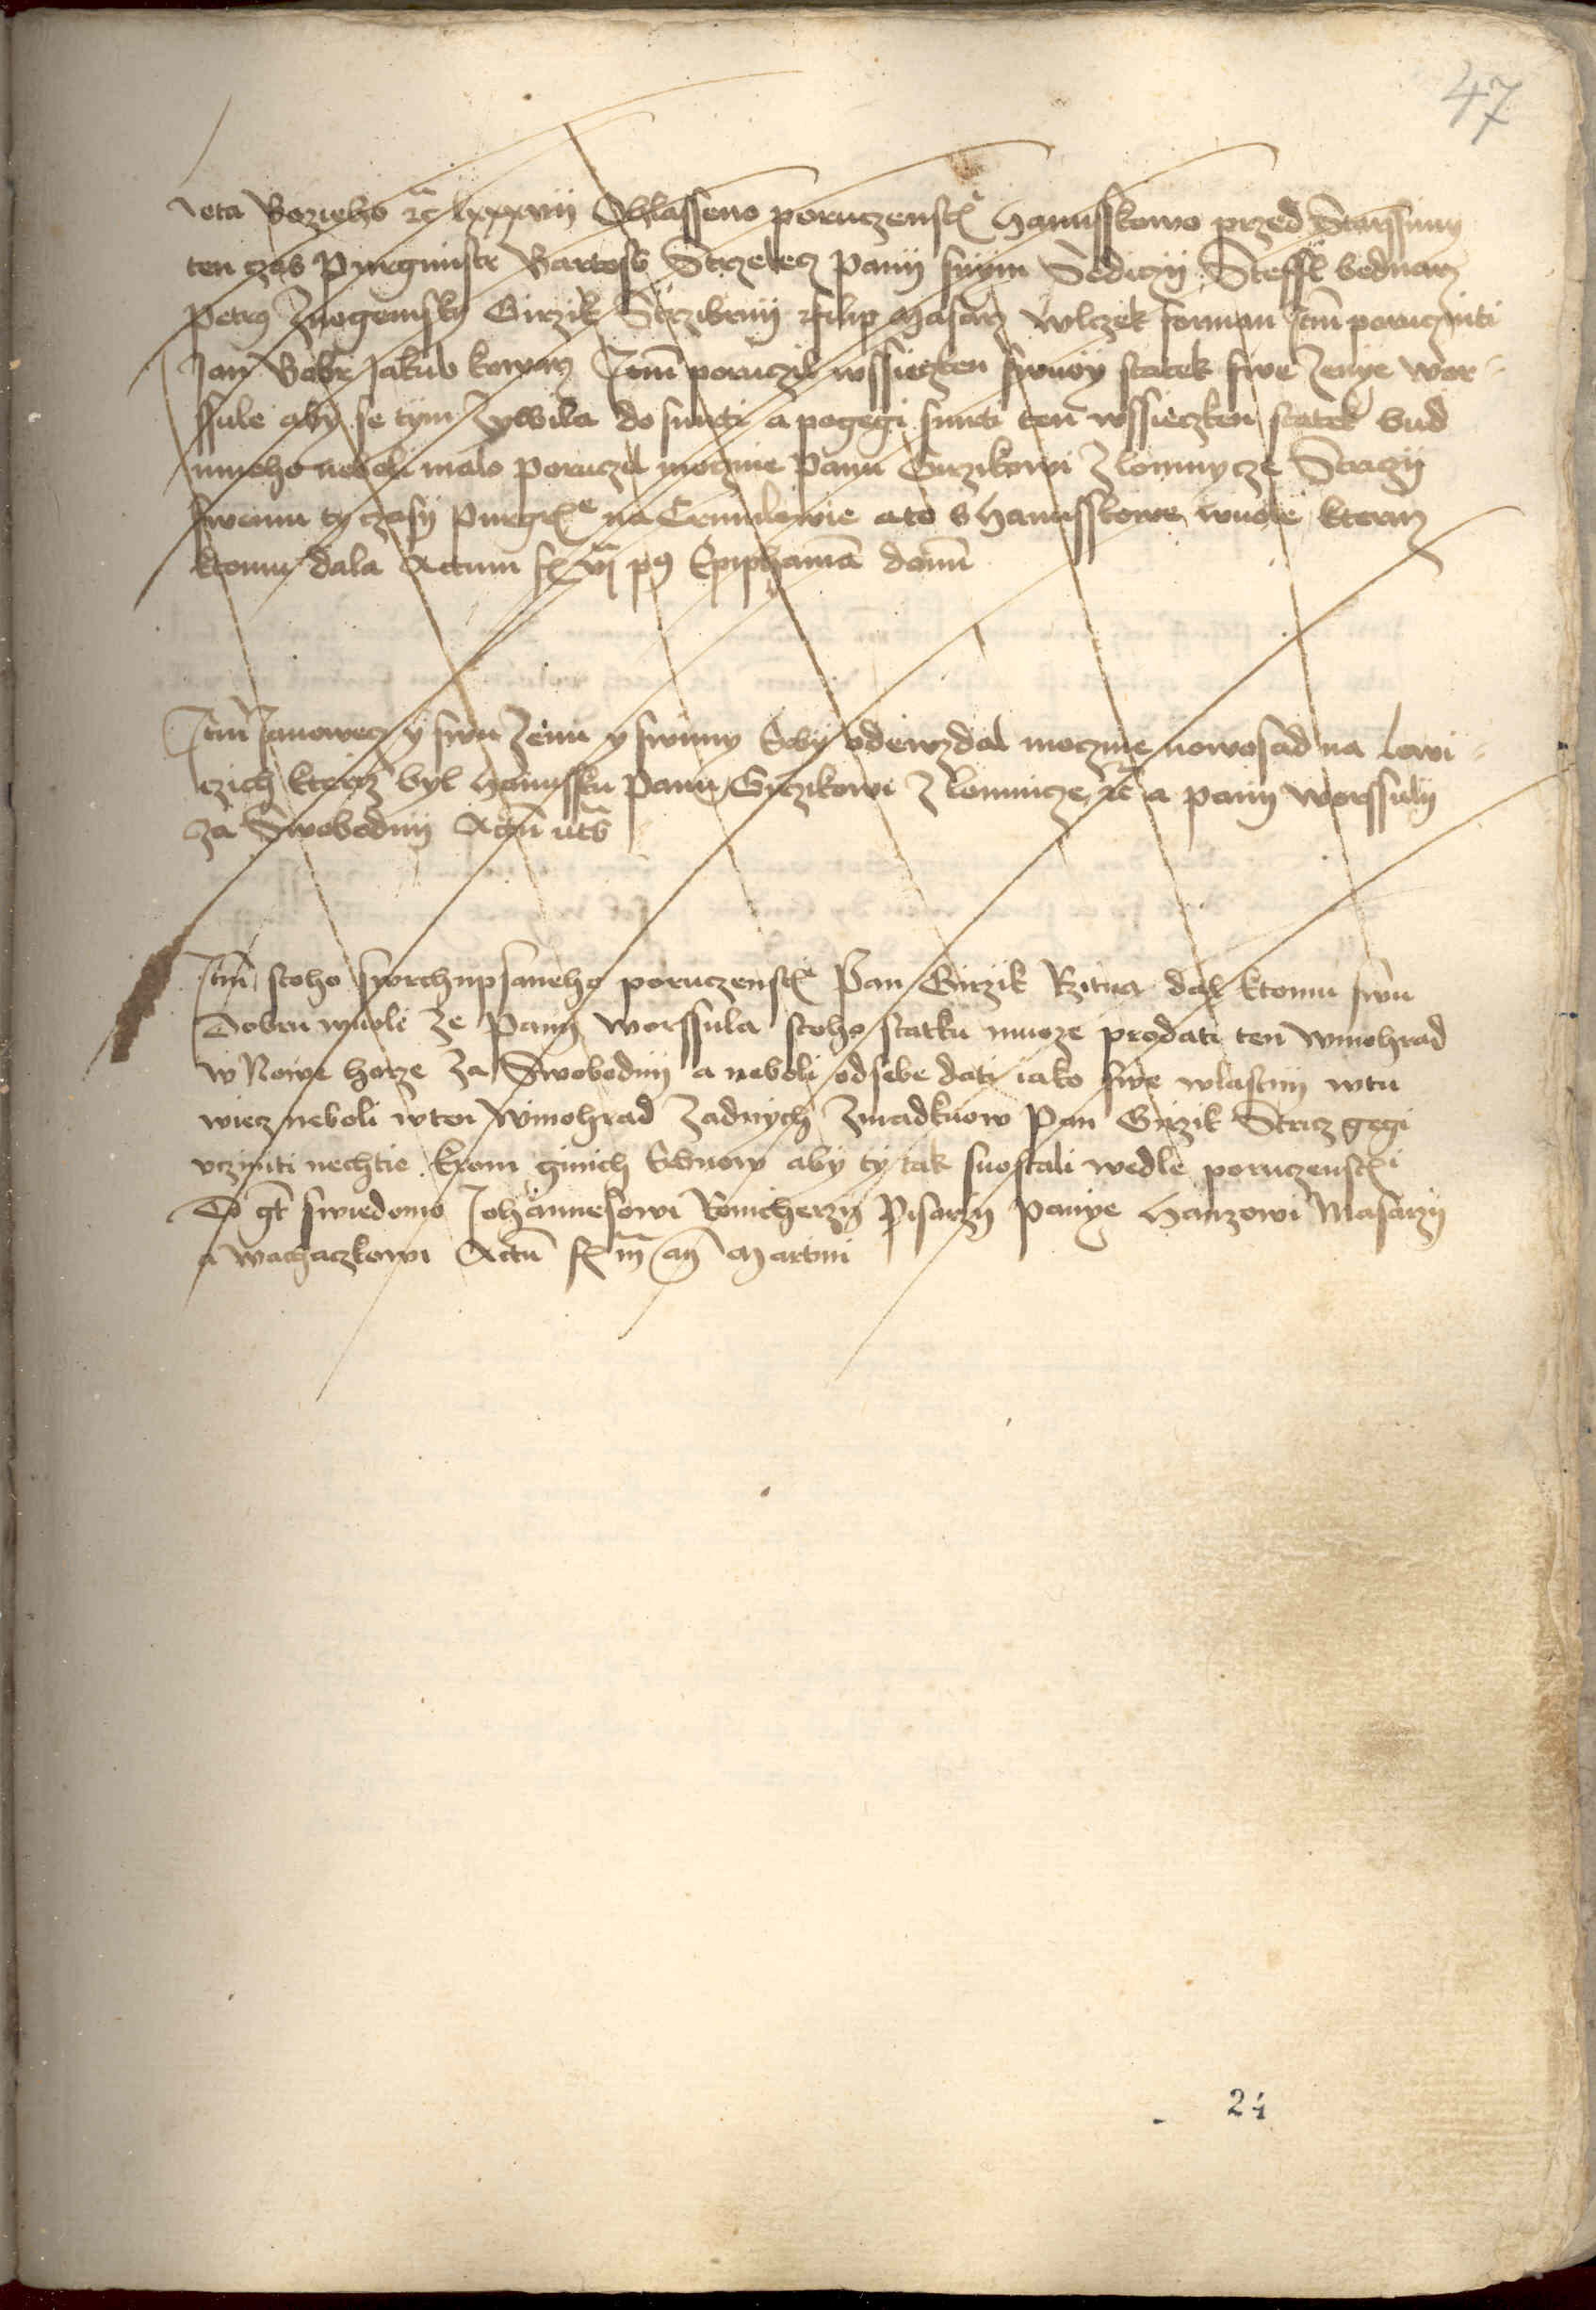 47
Leta Bozieho etc lxxxvij Ohlasseno poruczenstx hanusskowo przed Starssimy
ten czas Purgmistr Bartoss Strzelecz panij swym Sediczij Steffl bednarz
petrus Znogemsky Girzik Strzibrnij filip masarz wlczek forman Itm porucznici
Jan Bobr Jakub kowarz Itm poruczil wssieczken swuoy statek swe zenye wor-
ssule aby se tym zywila do smrti a pogegi smrti ten wssieczken statek bud
mnoho neboli malo poruczil mocznie panu Girzikowi z lomnycze Straczij
swemu ty czasy purgrx na Crumlowie a to s hanusskowe wuole kterauz
ktomu dala Actum fx vj pus Epiphaniam domini
Itm Janowecz y swu zenu y swimy Syny odewzdal moczne nowosad na lowi-
czich kteryz byl hanussku panu Girzikowi z lomnicze etc a panij worssuly
za Swobodnij Actum uts
Itm stoho swrchupsaneho poruczenstx Pan Girzik Rzitka dal ktomu swu
dobru wuoli ze panij worssula stoho statku muoze prodati ten winohrad
w Nowe horze za Swobodnij a neboli odsebe dati iako swe wlastnij wtu
wiecz neboli wten winohrad zadnych zmadkuow pan Girzik Stracz gegi
vcziniti nechtie krom ginich Gruntow aby ty tak zuostali wedle poruczenstx
To gt swiedomo Johannesowi Pisarzij panye hanzowi Masarzij
a wachaczkowi Actum fx iij an Martini
24